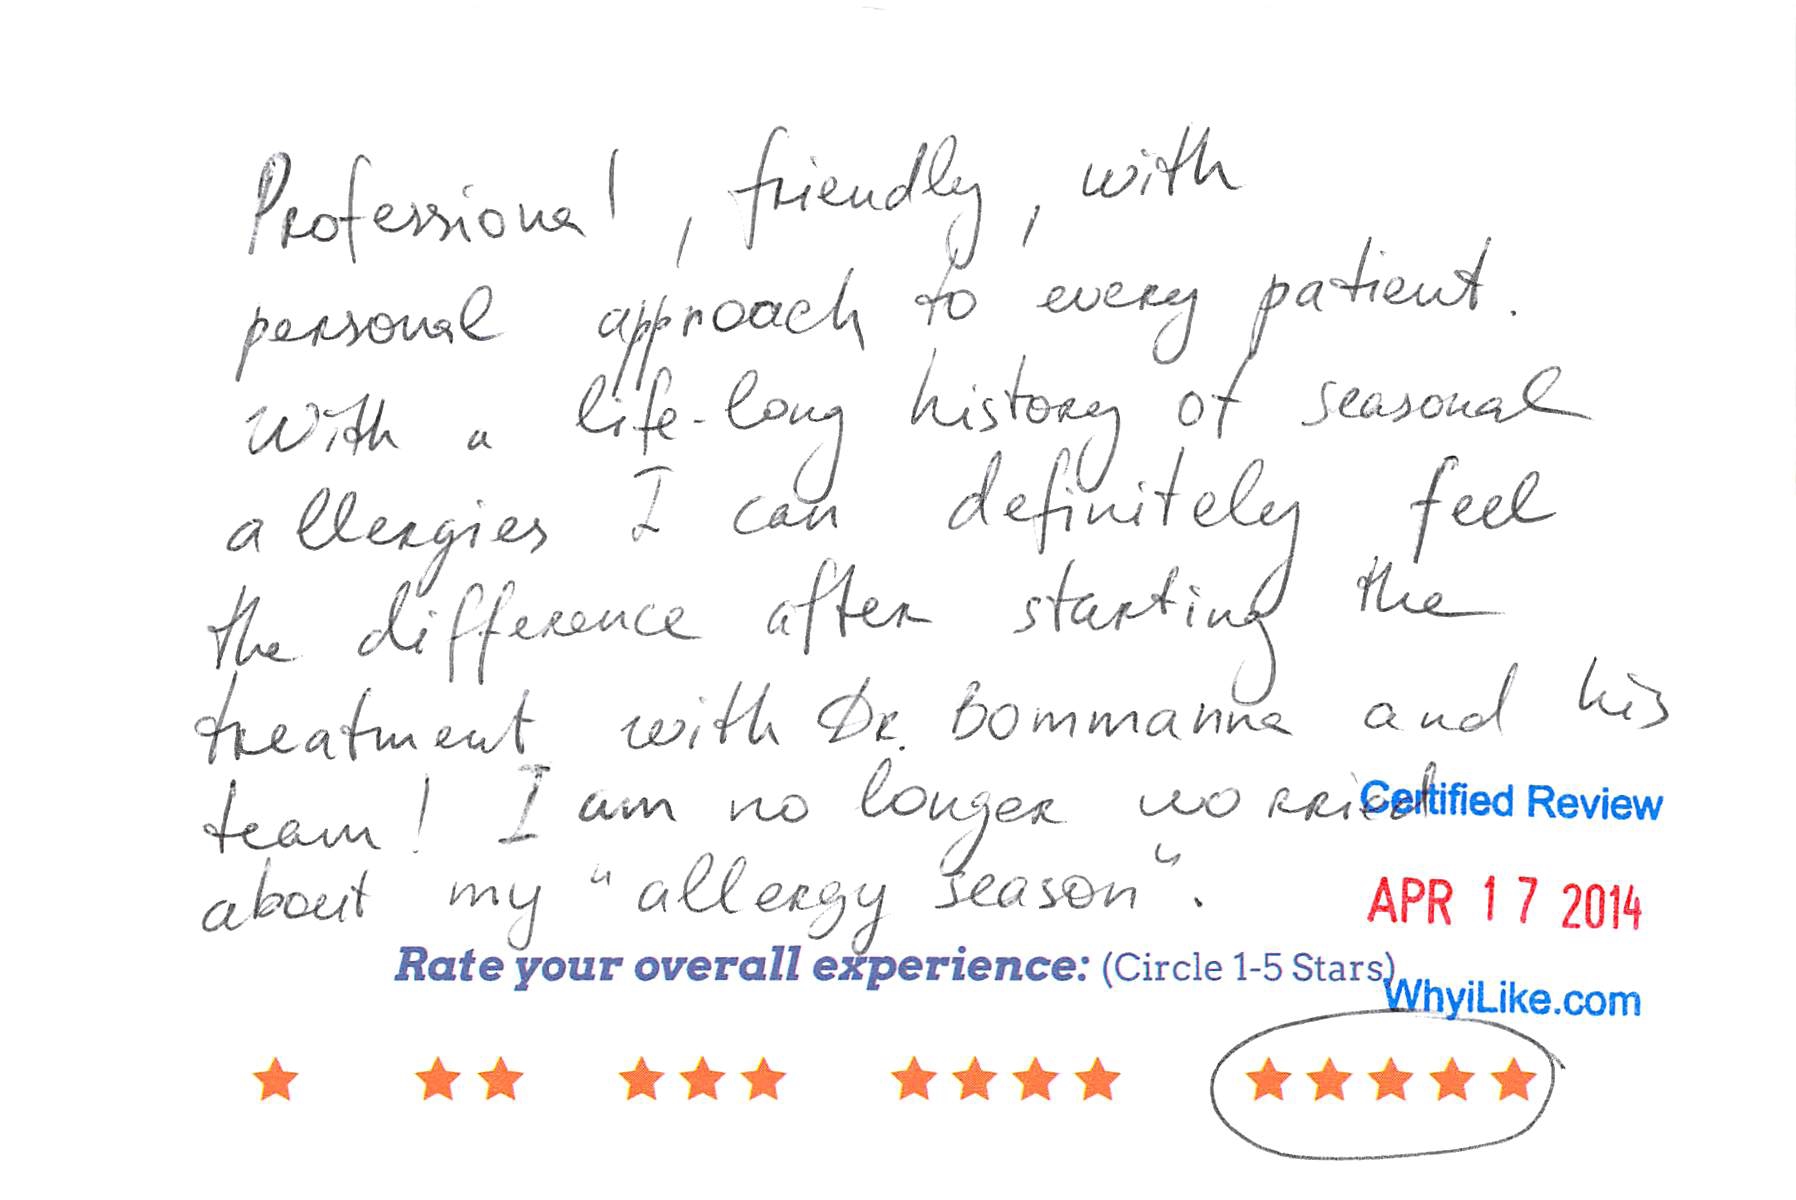 Professional, friendly, with
personal approach to every patient.
With a life-long history of seasonal
allergies I can definitely feel
the difference after starting the
treatment with Dr. Bommanna and his
team! I am no longer worried
Certified Review
about my "allergy season".
APR 17 2014
Rate your overall experience: (Circle 1-5 Stars)
WhyiLike.com